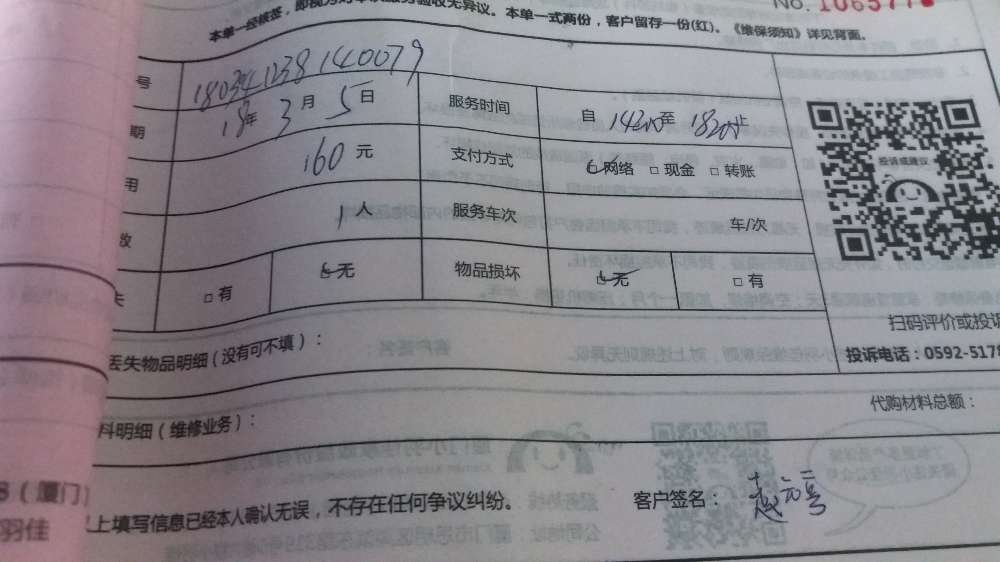 本单一经核签，即视为对本次服务验收无异议。本单一式两份，客户留存一份(红)。《维保须知》详见背面。
No.
号 180341238140079
期 18年 3月 5日 服务时间 自 14:00至 18:00止
用 160 元 支付方式 网络 □ 现金 □ 转账
数 1 人 服务车次 车/次
失 □ 有 无 物品损坏 无 □ 有
投诉或建议
扫码评价或投诉
投诉电话：0592-5178
丢失物品明细（没有可不填）：
料明细（维修业务）： 代购材料总额：
（厦门）
羽佳
上填写信息已经本人确认无误，不存在任何争议纠纷。 客户签名：